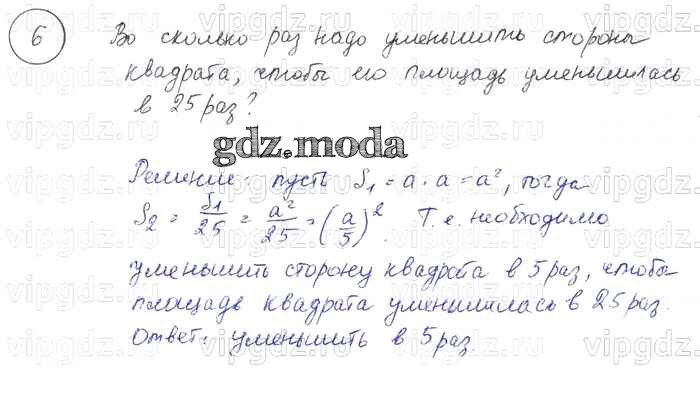 6 Во сколько раз надо уменьшить стороны
квадрата, чтобы его площадь уменьшилась
в 25 раз?
gdz.moda
Решение: пусть S₁ = a · a = a², тогда
S₂ = S₁/25 = a²/25 = (a/5)². Т.е. необходимо
уменьшить сторону квадрата в 5 раз, чтобы
площадь квадрата уменшилась в 25 раз.
Ответ: уменьшить в 5 раз.
vipgdz.ru